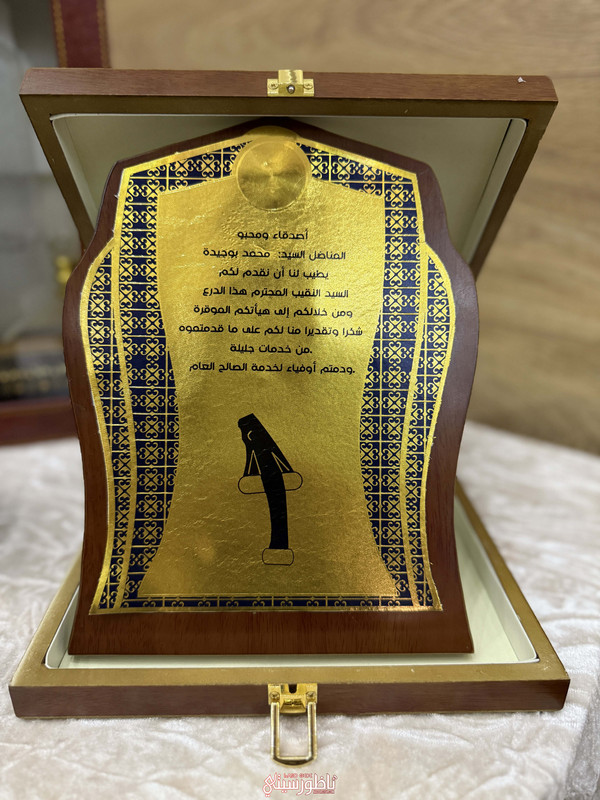 أصدقاء ومحبو
المناضل السيد: محمد بوجيدة
يطيب لنا أن نقدم لكم
السيد النقيب المحترم هذا الدرع
ومن خلالكم إلى هيأتكم الموقرة
شكرا وتقديرا منا لكم على ما قدمتموه
من خدمات جليلة.
ودمتم أوفياء لخدمة الصالح العام.
ناظورسيتي